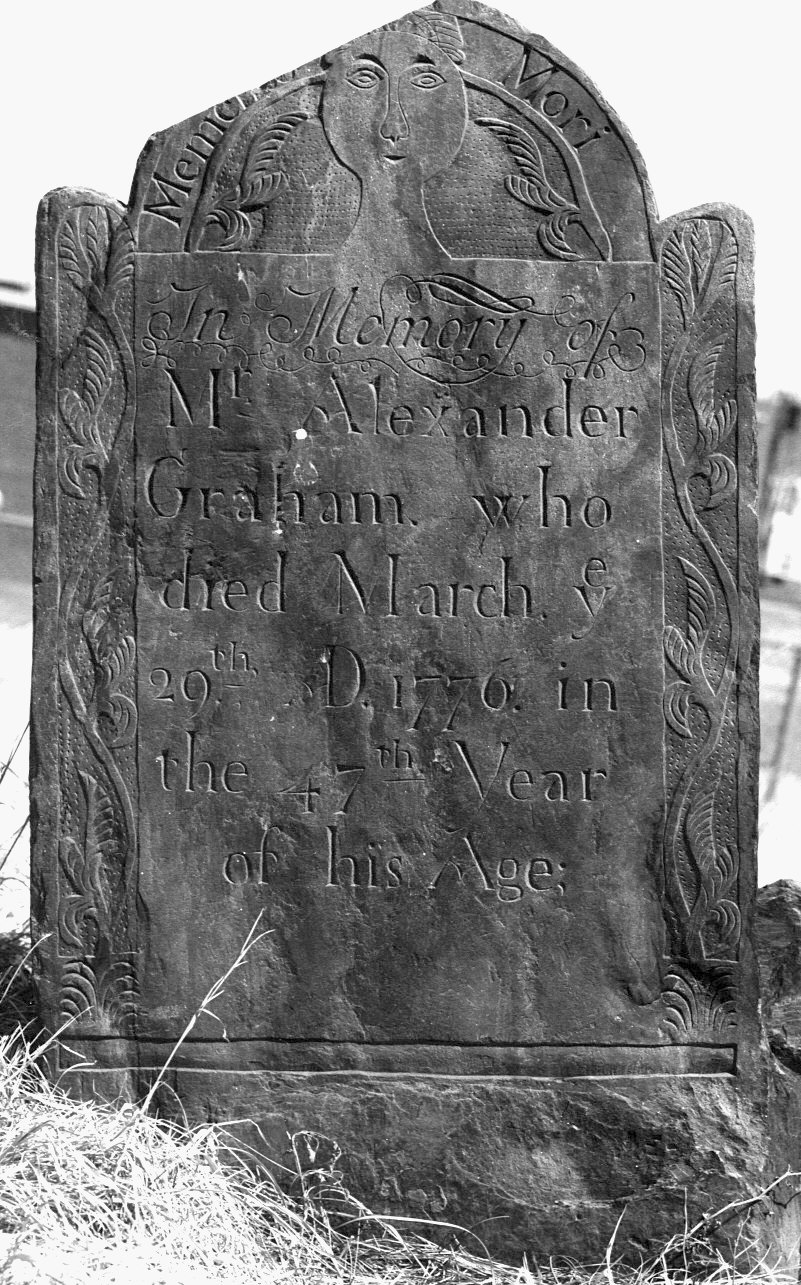 Memento Mori
In Memory of
Mr Alexander
Graham. who
died March. ye
29th. D. 1776. in
the 47th Year
of his Age;